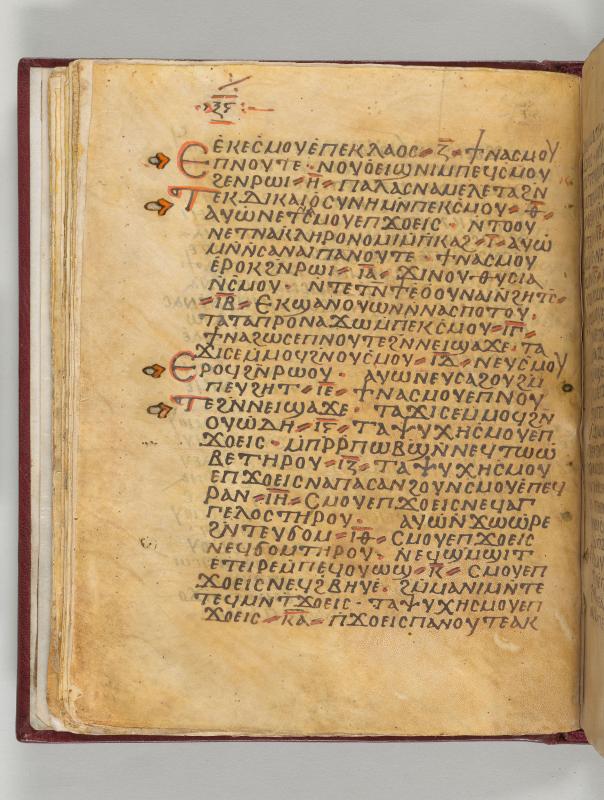 ⲝⲋ
ⲈⲔⲈⲤⲘⲞⲨⲈⲠⲈⲔⲖⲀⲞⲤ ⲍ̅ ϮⲚⲀⲤⲘⲞⲨ
ⲈⲠⲚⲞⲨⲦⲈ · ⲚⲞⲨⲞⲈⲒϢⲚⲒⲘⲠⲈϤⲤⲘⲞⲨ
ϨⲈⲚⲢⲰⲒ ⲏ̅ ⲠⲀⲖⲀⲤⲚⲀⲘⲈⲖⲈⲦⲀϨⲚ
ⲦⲈⲔⲆⲒⲔⲀⲒⲞⲤⲨⲚⲎⲘⲚⲠⲈⲔⲤⲘⲞⲨ ⲑ̅
ⲀⲨⲰⲚⲈⲦⲤⲘⲞⲨⲈⲠϪⲞⲈⲒⲤ · ⲚⲦⲞⲞⲨ
ⲚⲈⲦⲚⲀⲔⲖⲎⲢⲞⲚⲞⲘⲒⲘⲠⲔⲀϨ ⲓ̅ ⲀⲨⲰ
ⲘⲚⲚⲤⲀⲚⲀⲒⲠⲀⲚⲞⲨⲦⲈ · ϮⲚⲀⲤⲘⲞⲨ
ⲈⲢⲞⲔϨⲚⲢⲰⲒ ⲓ̅ⲁ̅ ϪⲒⲚⲞⲨⲐⲨⲤⲒⲀ
ⲚⲤⲘⲞⲨ · ⲚⲦⲈⲦⲚϮⲈⲞⲞⲨⲚⲀⲒⲚϨⲎⲦⲤ
ⲓ̅ⲃ̅ ⲈⲔϢⲀⲚⲞⲨⲰⲚⲚⲚⲀⲤⲠⲞⲦⲞⲨ ·
ⲦⲀⲦⲀⲠⲢⲞⲚⲀϪⲰⲘⲠⲈⲔⲤⲘⲞⲨ ⲓ̅ⲅ̅
ϮⲚⲀϨⲰⲤⲈⲠⲚⲞⲨⲦⲈϨⲚⲚⲈⲒϢⲀϪⲈ · ⲦⲀ
ϪⲒⲤⲈⲘⲘⲞϤϨⲚⲞⲨⲤⲘⲞⲨ ⲓ̅ⲇ̅ ⲚⲈⲨⲤⲘⲞⲨ
ⲈⲢⲞϤϨⲚⲢⲰⲞⲨ · ⲀⲨⲰⲚⲈⲨⲤⲀϨⲞⲨϨⲘ
ⲠⲈⲨϨⲎⲦ ⲓ̅ⲉ̅ ϮⲚⲀⲤⲘⲞⲨⲈⲠⲚⲞⲨ
ⲦⲈϨⲚⲚⲈⲒϢⲀϪⲈ · ⲦⲀϪⲒⲤⲈⲘⲘⲞϤϨⲚ
ⲞⲨⲰⲆⲎ ⲓ̅ⲋ̅ ⲦⲀⲮⲨⲬⲎⲤⲘⲞⲨⲈⲠ
ϪⲞⲈⲒⲤ · ⲘⲠⲢⲢⲠⲰⲂϢⲚⲚⲈϤⲦⲰⲰ
ⲂⲈⲦⲎⲢⲞⲨ ⲓ̅ⲍ̅ ⲦⲀⲮⲨⲬⲎⲤⲘⲞⲨ
ⲈⲠϪⲞⲈⲒⲤⲚⲀⲠⲀⲤⲀⲚϨⲞⲨⲚⲤⲘⲞⲨⲈⲠⲈϤ
ⲢⲀⲚ ⲓ̅ⲏ̅ ⲤⲘⲞⲨⲈⲠϪⲞⲈⲒⲤⲚⲈϤⲀⲄ
ⲄⲈⲖⲞⲤⲦⲎⲢⲞⲨ · ⲀⲨⲰⲚϪⲰⲰⲢⲈ
ϨⲚⲦⲈⲨϬⲞⲘ ⲓ̅ⲑ̅ ⲤⲘⲞⲨⲈⲠϪⲞⲈⲒⲤ
ⲚⲈϤϬⲞⲘⲦⲎⲢⲞⲨ · ⲚⲈϤϢⲘϢⲒⲦ
ⲈⲦⲈⲒⲢⲈⲘⲠⲈϤⲞⲨⲰϢ ⲕ̅ ⲤⲘⲞⲨⲈⲠ
ϪⲞⲈⲒⲤⲚⲈϤϨⲂⲎⲨⲈ · ϨⲘⲘⲀⲚⲒⲘⲚⲦⲈ
ⲦⲈϤⲘⲚⲦϪⲞⲈⲒⲤ · ⲦⲀⲮⲨⲬⲎⲤⲘⲞⲨⲈⲠ
ϪⲞⲈⲒⲤ ⲕ̅ⲁ̅ ⲠϪⲞⲈⲒⲤⲠⲀⲚⲞⲨⲦⲈⲀⲔ